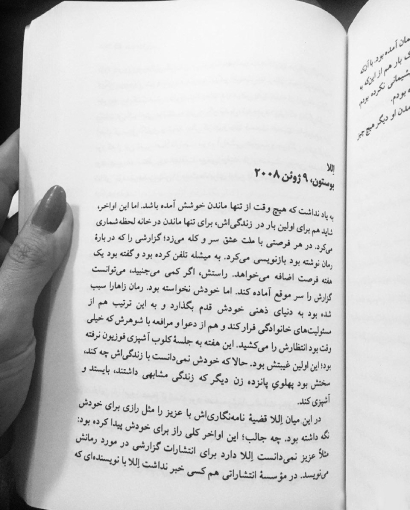 اِللا
بوستون، ۹ ژوئن ۲۰۰۸
به یاد نداشت که هیچ وقت از تنها ماندن خوشش آمده باشد. اما این اواخر،
شاید هم برای اولین بار در زندگی‌اش، برای تنها ماندن در خانه لحظه‌شماری
می‌کرد. در هر فرصتی با ملت عشق سر و کله می‌زد؛ گزارشی را که در بارهٔ
رمان نوشته بود بازنویسی می‌کرد. به میشله تلفن کرده بود و گفته بود یک
هفته فرصت اضافه می‌خواهد. راستش، اگر کمی می‌جنبید، می‌توانست
گزارش را سر موقع آماده کند. اما خودش نخواسته بود. رمان زاهارا سبب
شده بود به دنیای ذهنی خودش قدم بگذارد و به این ترتیب هم از
مسئولیت‌های خانوادگی فرار کند و هم از دعوا و مرافعه با شوهرش که خیلی
وقت بود انتظارش را می‌کشید. این هفته به جلسهٔ کلوب آشپزی فوزیون نرفته
بود؛ این اولین غیبتش بود. حالا که خودش نمی‌دانست با زندگی‌اش چه کند،
سختش بود پهلوی پانزده زن دیگر که زندگی مشابهی داشتند، بایستد و
آشپزی کند.
در این میان اِللا قضیهٔ نامه‌نگاری‌اش با عزیز را مثل رازی برای خودش
نگه داشته بود. چه جالب؛ این اواخر کلی راز برای خودش پیدا کرده بود:
مثلاً عزیز نمی‌دانست اِللا دارد برای انتشارات گزارشی در مورد رمانش
می‌نویسد. در مؤسسهٔ انتشاراتی هم کسی خبر نداشت اِللا با نویسنده‌ای که
آمده بود با آنکه
بار هم از این‌که به
نکرده بودم
بودم.
او دیگر هیچ چیز